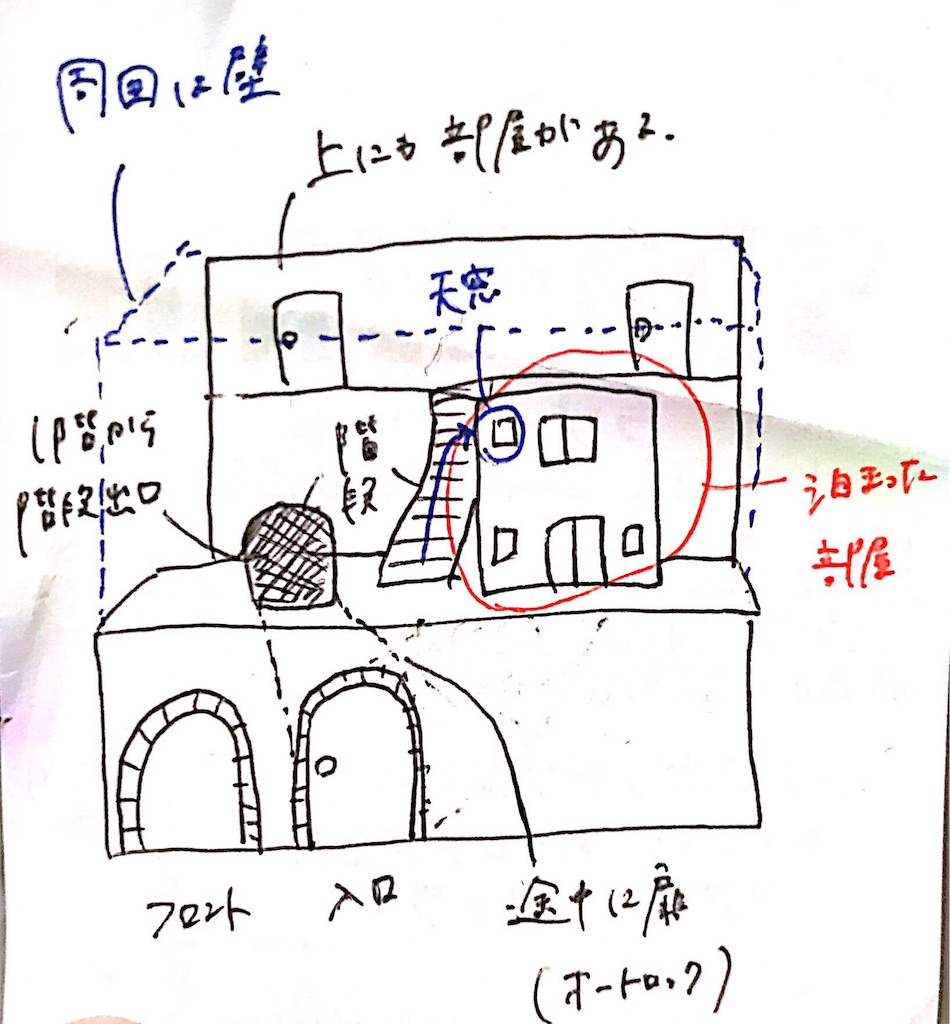 周囲は壁
上にも部屋がある.
天窓
1階から
階段出口
階
段
泊まった
部屋
フロント
入口
途中に扉
(オートロック)